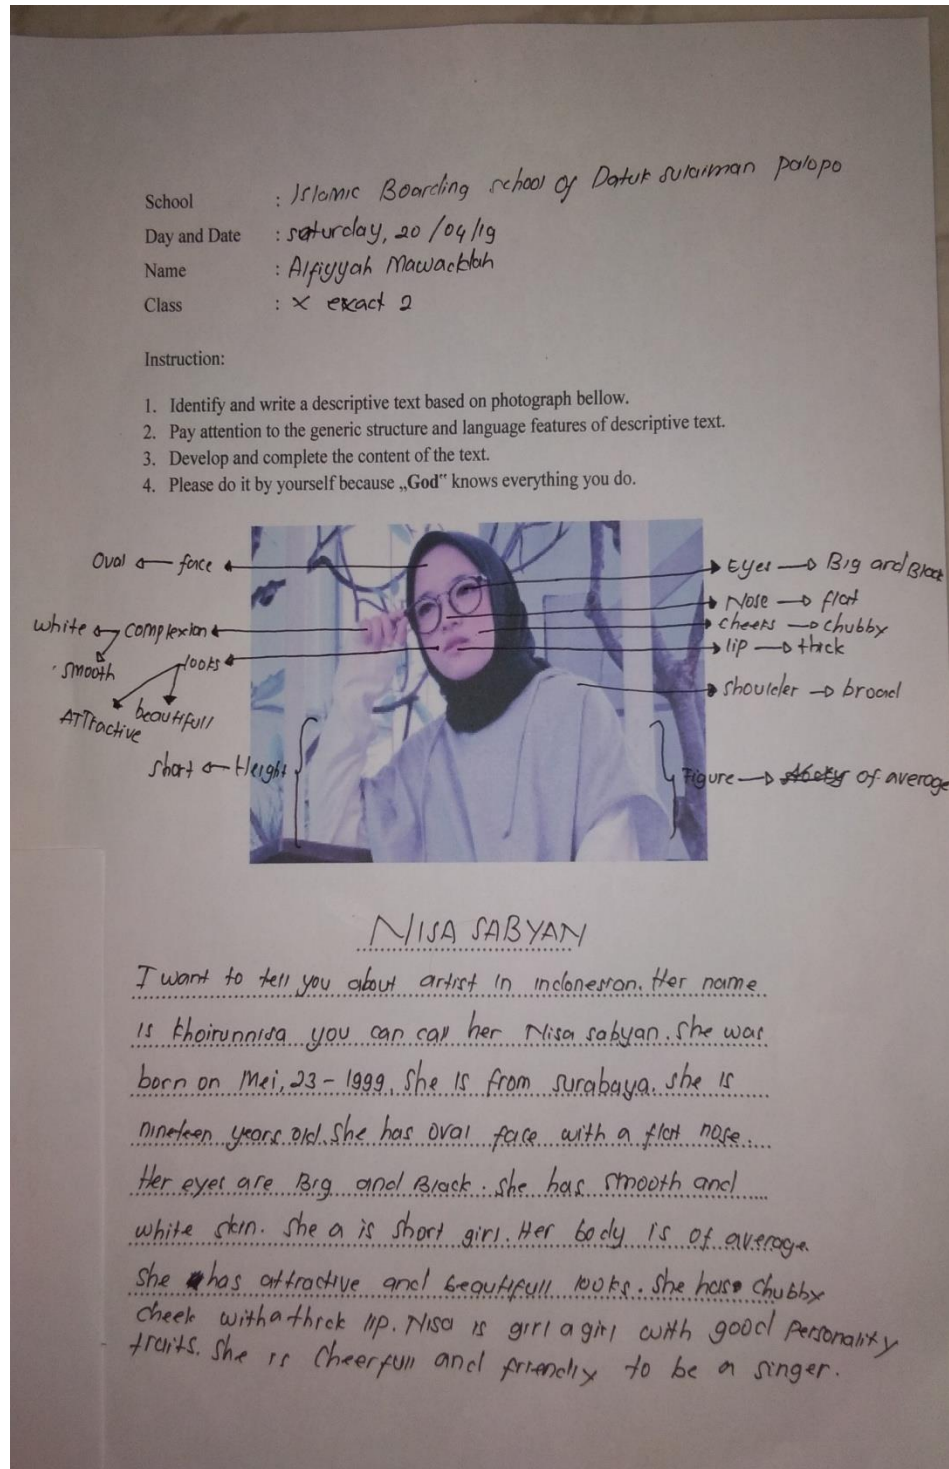 School : Islamic Boarding school of Datuk sulaiman palopo
Day and Date : saturday, 20/04/19
Name : Alfiyyah Mawaddah
Class : X exact 2
Instruction:
1. Identify and write a descriptive text based on photograph bellow.
2. Pay attention to the generic structure and language features of descriptive text.
3. Develop and complete the content of the text.
4. Please do it by yourself because „God" knows everything you do.
Oval face
Eyes Big and Black
Nose flat
white complexion
cheeks chubby
smooth
looks
lip thick
Attractive beautifull
shoulder broad
short Height
Figure of average
NISA SABYAN
I want to tell you about artist in indonesian. Her name
is khoirunnisa you can call her Nisa sabyan. She was
born on Mei, 23 - 1999. She is from surabaya. she is
nineteen years old. She has oval face with a flat nose.
Her eyes are Big and Black. she has smooth and
white skin. She a is short girl. Her body is of average
She has attractive and beautifull looks. She has chubby
cheek with a thick lip. Nisa is girl a girl with good personality
traits. She is cheerfull and friendly to be a singer.